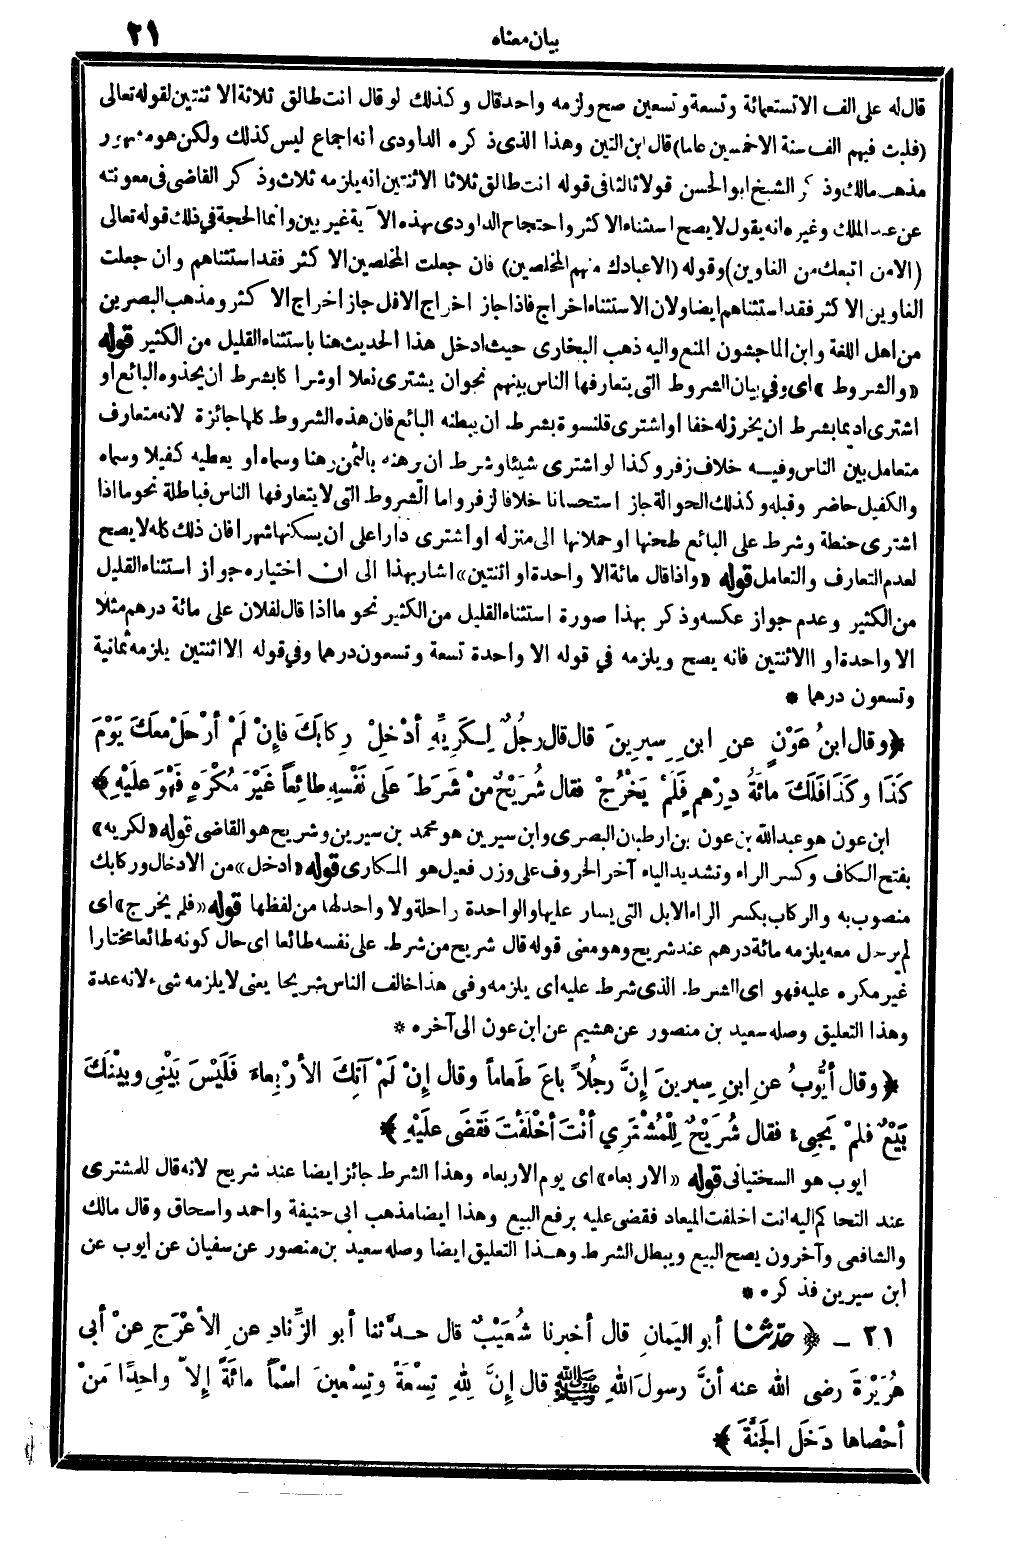 بيان معناه
٢١
قال له على الف الا تستعمائة وتسعة وتسعين صح ولزمه واحد قال وكذلك لو قال انت طالق ثلاثة الا ثنتين لقوله تعالى
(فلبث فيهم الف سنة الا خمسين عاما) قال ابن التين وهذا الذى ذكره الداودى انه اجماع ليس كذلك ولكن هو مشهور
مذهب مالك وذكر الشيخ ابو الحسن قولا ثالثا فى قوله انت طالق ثلاثا الا ثنتين انه يلزمه ثلاث وذكر القاضى فى معونته
عن عبد الملك وغيره انه يقول لا يصح استثناء الاكثر واحتجاج الداودى بهذه الآية غير بين وانما الحجة في ذلك قوله تعالى
(الا من اتبعك من الغاوين) وقوله (الا عبادك منهم المخلصين) فان جعلت المخلصين الاكثر فقد استثناهم وان جعلت
الغاوين الاكثر فقد استثناهم ايضا ولان الاستثناء اخراج فاذا جاز اخراج الاقل جاز اخراج الاكثر ومذهب البصريين
من اهل اللغة وابن الماجشون المنع واليه ذهب البخارى حيث ادخل هذا الحديث هنا باستثناء القليل من الكثير قوله
«والشروط» اى وفي بيان الشروط التى يتعارفها الناس بينهم نحو ان يشترى نعلا او شرا كا بشرط ان يحذوه البائع او
اشترى اديما بشرط ان يخرز له خفا او اشترى قلنسوة بشرط ان يبطنه البائع فان هذه الشروط كلها جائزة لانه متعارف
متعامل بين الناس وفيه خلاف زفر وكذا لو اشترى شيئا وشرط ان يرهنه بالثمن رهنا وسماه او يعطيه كفيلا وسماه
والكفيل حاضر وقبله وكذلك الحوالة جاز استحسانا خلافا لزفر واما الشروط التى لا يتعارفها الناس فباطلة نحو ما اذا
اشترى حنطة وشرط على البائع طحنها او حملانها الى منزله او اشترى دارا على ان يسكنها شهرا فان ذلك كله لا يصح
لعدم التعارف والتعامل قوله «واذا قال مائة الا واحدة او اثنتين» اشار بهذا الى ان اختياره جواز استثناء القليل
من الكثير وعدم جواز عكسه وذكر بهذا صورة استثناء القليل من الكثير نحو ما اذا قال لفلان على مائة درهم مثلا
الا واحدة او الا ثنتين فانه يصح ويلزمه في قوله الا واحدة تسعة وتسعون درهما وفي قوله الا اثنتين يلزمه ثمانية
وتسعون درهما *
﴿وقال ابنُ عَوْنٍ عنِ ابنِ سِيرِينَ قال قال رجُلٌ لِكَرِيِّهِ أدْخِلْ رِكابَكَ فإنْ لَمْ أرْحَلْ معَكَ يَوْمَ
كَذَا وكَذَا فَلَكَ مائَةُ دِرْهمٍ فلَمْ يَخْرُجْ فقال شُرَيْحٌ منْ شَرَطَ عَلَى نَفْسِهِ طائِعاً غَيْرَ مُكْرَهٍ فَهْوَ عَلَيْهِ﴾
ابن عون هو عبد الله بن عون بن ارطبان البصرى وابن سيرين هو محمد بن سيرين وشريح هو القاضى قوله «لكريه»
بفتح الكاف وكسر الراء وتشديد الياء آخر الحروف على وزن فعيل هو المكارى قوله «ادخل» من الادخال وركابك
منصوب به والركاب بكسر الراء الابل التى يسار عليها والواحدة راحلة ولا واحد لها من لفظها قوله «فلم يخرج» اى
لم يرحل معه يلزمه مائة درهم عند شريح وهو معنى قوله قال شريح من شرط على نفسه طائعا اى حال كونه طائعا مختارا
غير مكره عليه فهو اى الشرط الذى شرط عليه اى يلزمه وفى هذا خالف الناس شريحا يعنى لا يلزمه شىء لانه عدة
وهذا التعليق وصله سعيد بن منصور عن هشيم عن ابن عون الى آخره *
﴿وقال أيُّوبُ عنِ ابنِ سِيرِينَ إنَّ رجُلاً باعَ طَعاماً وقال إنْ لَمْ آتِكَ الأرْبِعاءَ فَلَيْسَ بَيْنِي وبيْنَكَ
بَيْعٌ فلمْ يَجِىءْ فقال شُرَيْحٌ لِلْمُشْتَرِي أنْتَ أخْلَفْتَ فَقَضَى علَيْهِ﴾
ايوب هو السختيانى قوله «الاربعاء» اى يوم الاربعاء وهذا الشرط جائز ايضا عند شريح لانه قال للمشترى
عند التحاكم اليه انت اخلفت الميعاد فقضى عليه برفع البيع وهذا ايضا مذهب ابى حنيفة واحمد واسحاق وقال مالك
والشافعى وآخرون يصح البيع ويبطل الشرط وهذا التعليق ايضا وصله سعيد بن منصور عن سفيان عن ايوب عن
ابن سيرين فذكره *
٢١ - ﴿حدّثنا أبو اليَمانِ قال أخبرنا شُعَيْبٌ قال حدَّثنا أبو الزِّنادِ عنِ الأعْرَجِ عنْ أبي
هُرَيْرَةَ رضى الله عنه أنَّ رسولَ اللهِ ﷺ قال إنَّ للهِ تِسْعَةً وتِسْعِينَ اسْماً مائَةً إلاَّ واحِدًا مَنْ
أحْصاها دَخَلَ الجَنَّةَ﴾